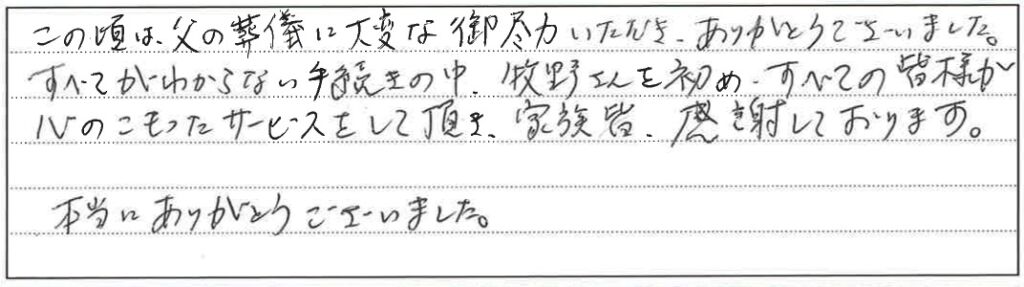 この頃は、父の葬儀に大変な御尽力いただき、ありがとうございました。
すべてがわからない手続きの中、牧野さんを初め、すべての皆様が
心のこもったサービスをして頂き、家族皆、感謝しております。
本当にありがとうございました。